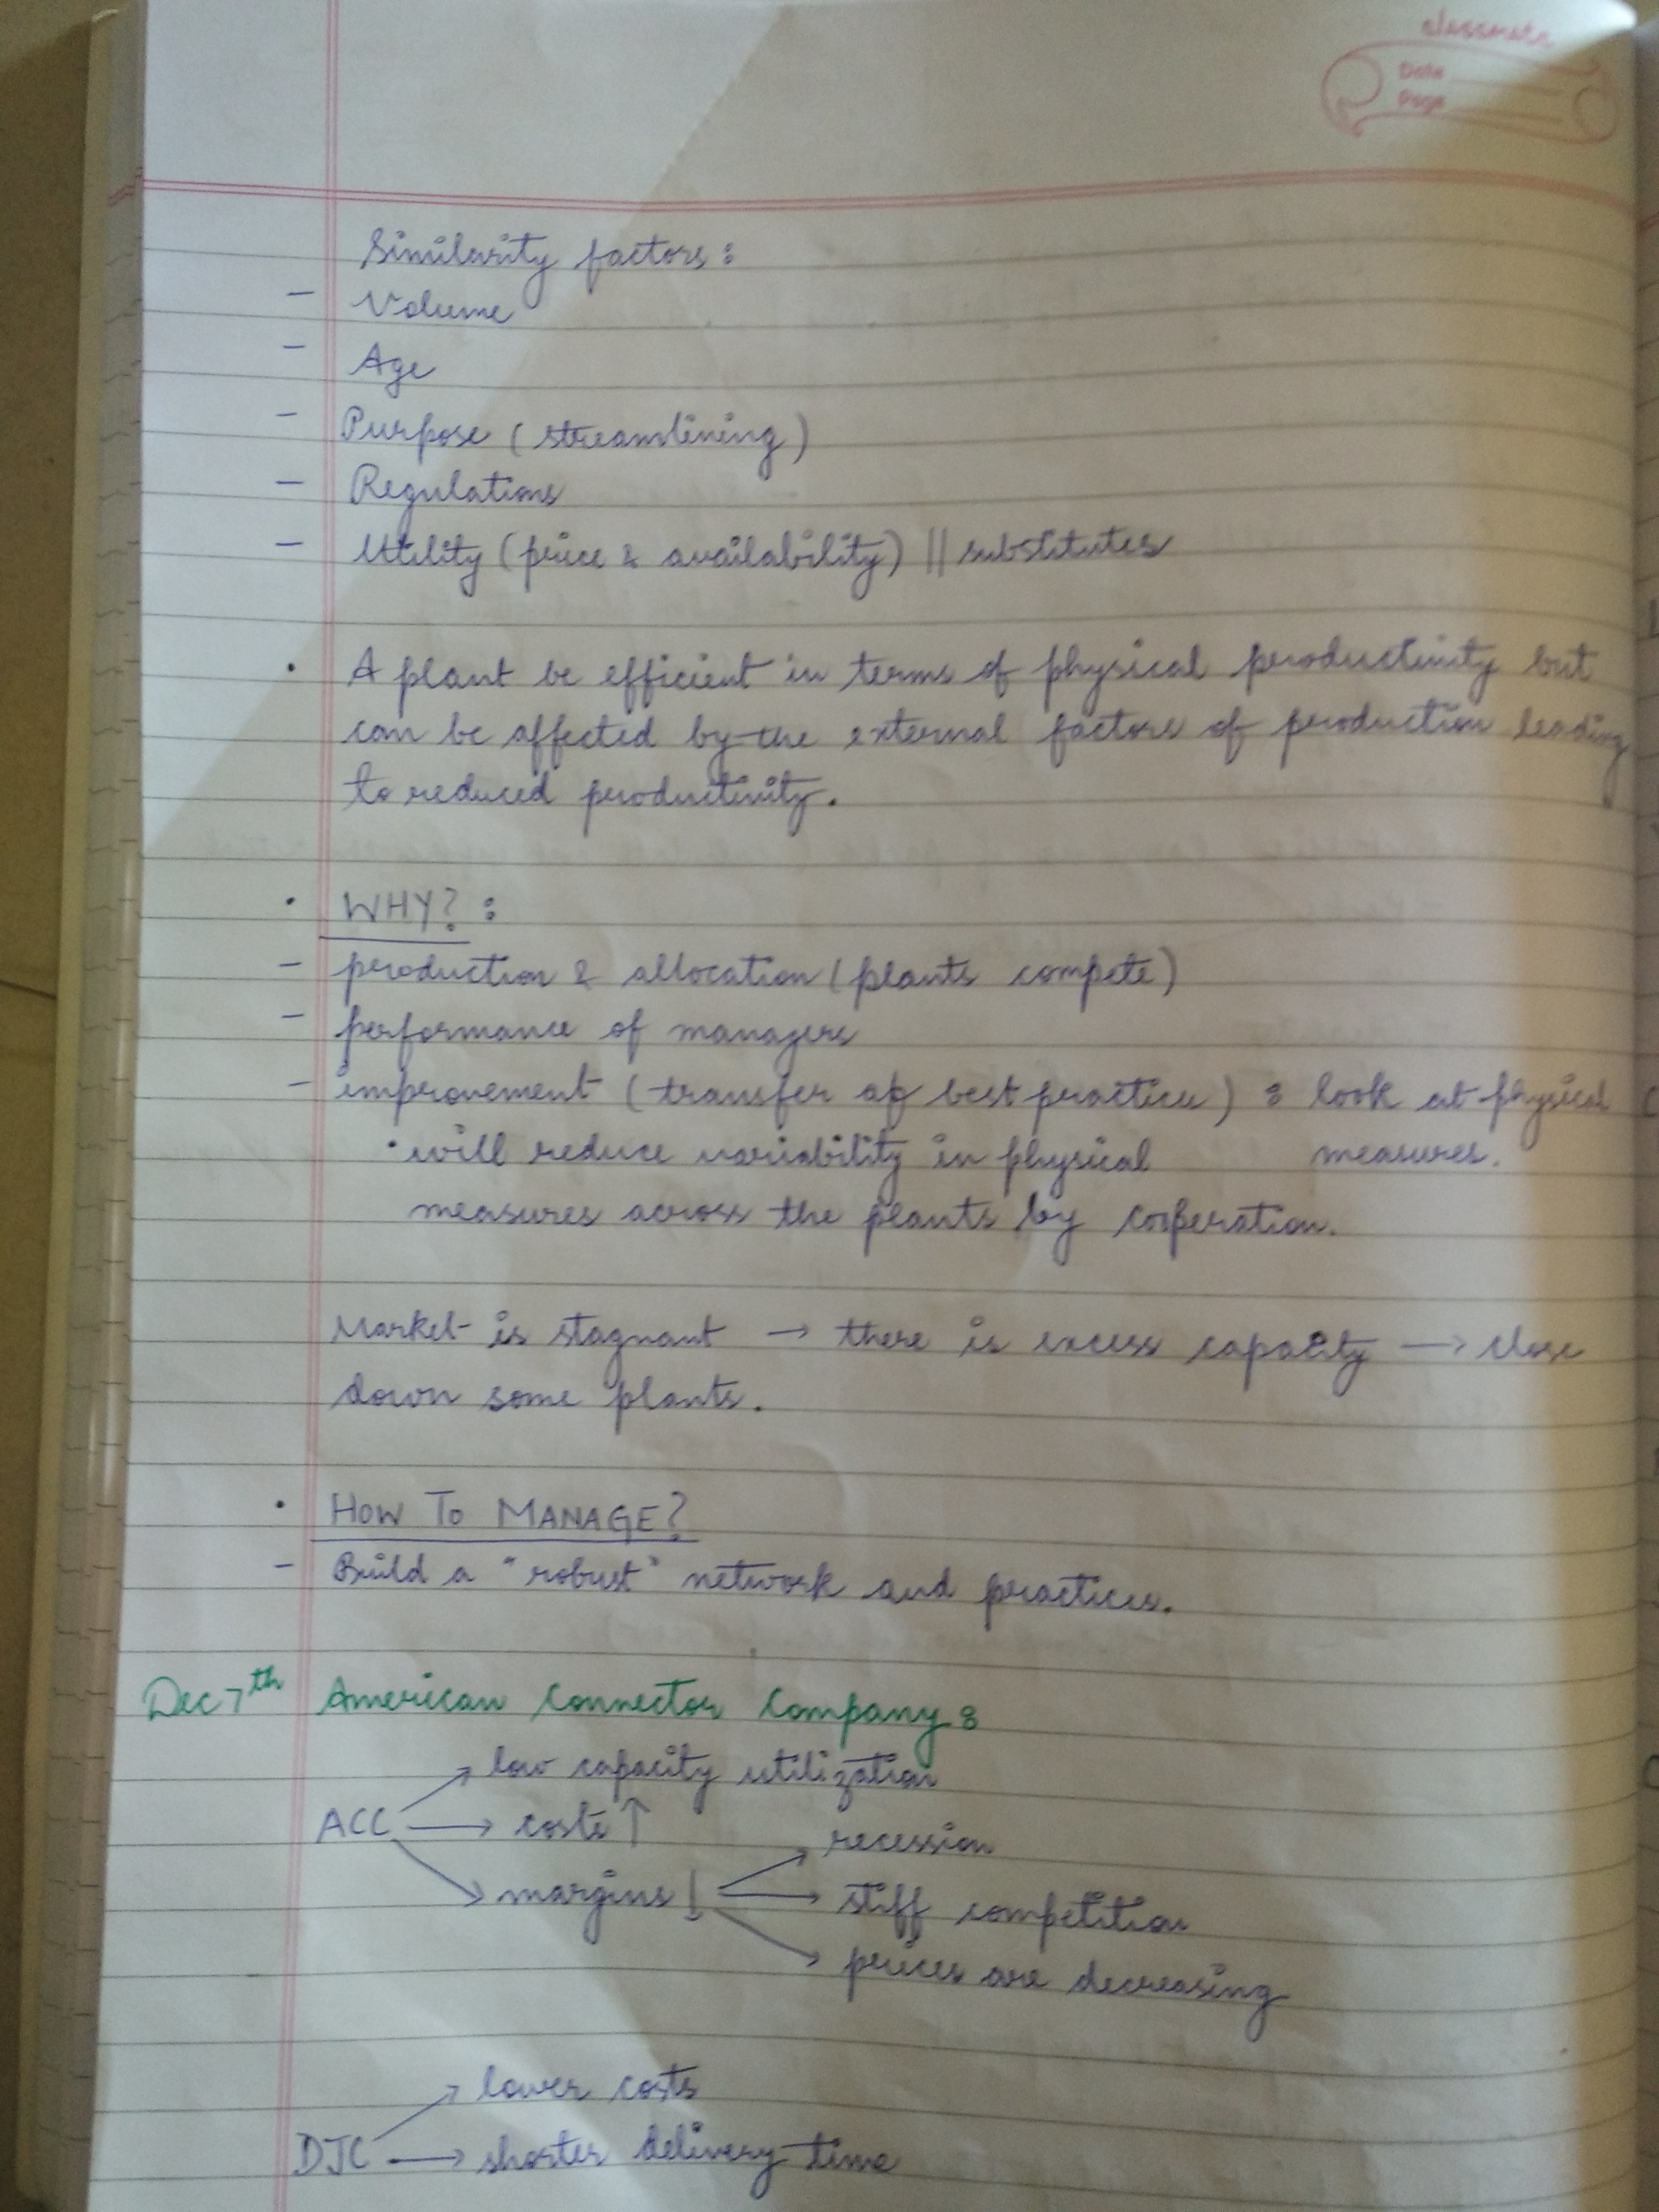 classmate
Date
Page
Similarity factors :
- Volume
- Age
- Purpose (streamlining)
- Regulations
- Utility (price & availability) || substitutes
• A plant be efficient in terms of physical productivity but
can be affected by the external factors of production leading
to reduced productivity.
• WHY? :
- production & allocation (plants compete)
- performance of managers
- improvement (transfer of best practice) : look at physical
• will reduce variability in physical measures.
measures across the plants by cooperation.
Market is stagnant → there is excess capacity → close
down some plants.
• HOW TO MANAGE?
- Build a "robust" network and practices.
Dec 7th American Connector Company :
→ low capacity utilization
ACC → costs ↑
recession
→ margins ↓ → stiff competition
→ prices are decreasing
→ lower costs
DJC → shorter delivery time